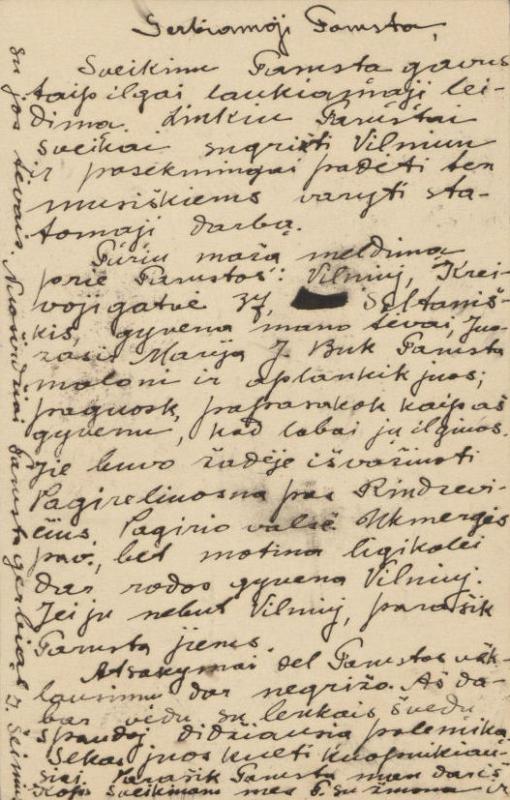 Gerbiamoji Tamsta,
Sveikinu Tamsta gavus
taip ilgai laukiamąjį lei-
dimą. Linkiu Tamstai
sveikai sugrįžti Vilniun
ir pasekmingai padėti ten
musiškiems varyti sta-
tomąjį darbą.
Turiu mažą meldimą
prie Tamstos: Vilniuj, Krei-
voji gatvė 37, Soltaniš-
kis, gyvena mano tėvai, Juo-
zas ir Marija J. Buk Tamsta
maloni ir aplankik juos;
paguosk, papasakok kaip aš
gyvenu, kad labai ju ilgiuos.
Jie buvo žadėję išvažiuoti
Pagireliuosna pas Rindzevi-
čius, Pagirio valsč. Ukmergės
pav., bet motina ligikolei
dar rodos gyvena Vilniuj.
Jei ju nebut Vilniuj, parašik
Tamsta jiems.
Atsakymai del Tamstos
klausimu dar negrižo. Aš da-
bar vedu su lenkais švedu
spaudoj didžiausia polemika.
Sekas juos kulti
Parašik Tamsta man
Kojo sveikinam mes su žmona ir
su jos tėvais. Nuoširdžiai Tamsta gerbiąs J.